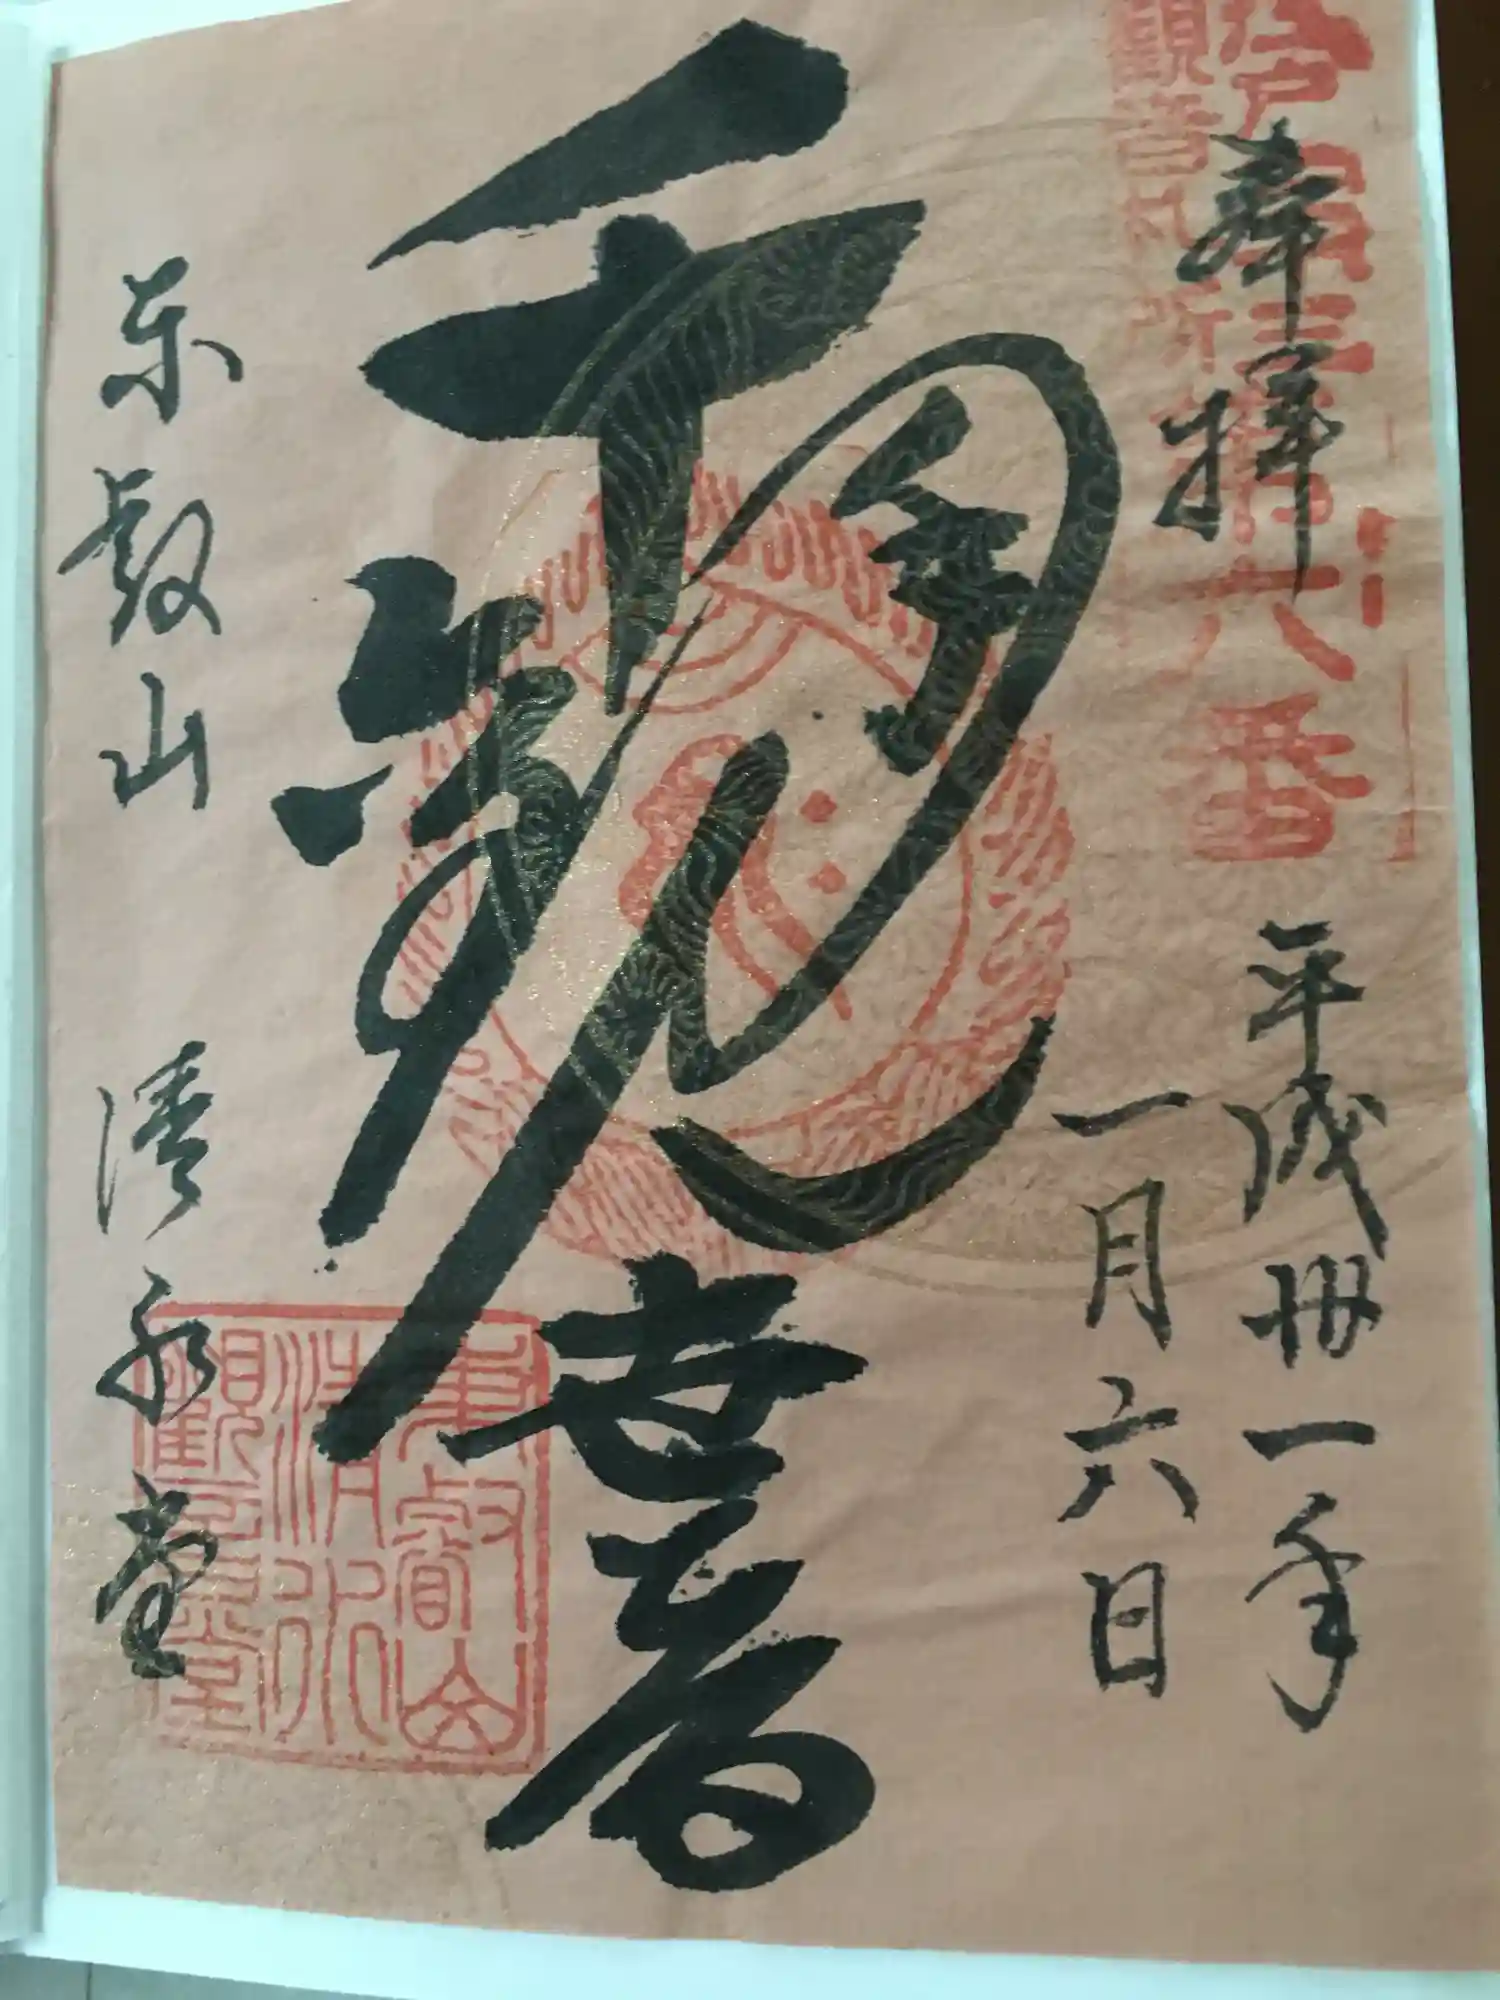 奉拝
平成卅一年
一月六日
千観世音
東叡山 清水堂
観音札所
六番
東叡山
清水
觀音堂